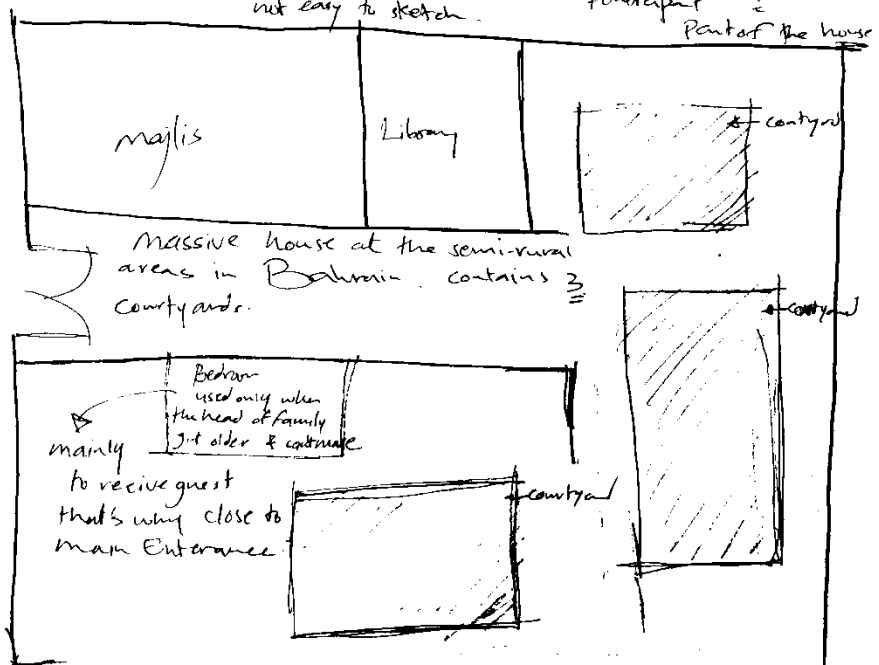 not easy to sketch.
Part of the house
majlis
Library
courtyard
massive house at the semi-rural
areas in Bahrain. contains 3
courtyards.
courtyard
Bedroom
used only when
the head of family
get older &
mainly
to recive guest
that's why close to
main Enterance.
courtyard